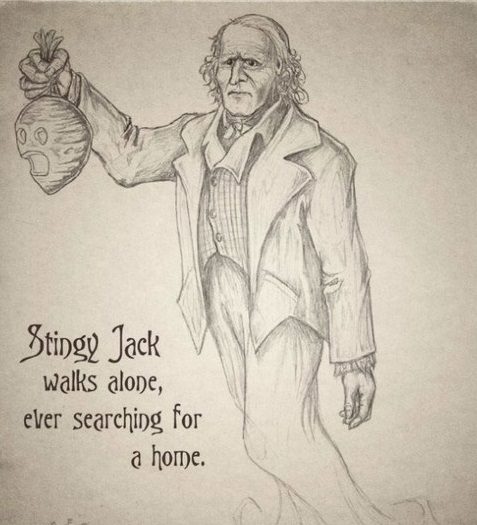 Stingy Jack
walks alone,
ever searching for
a home.